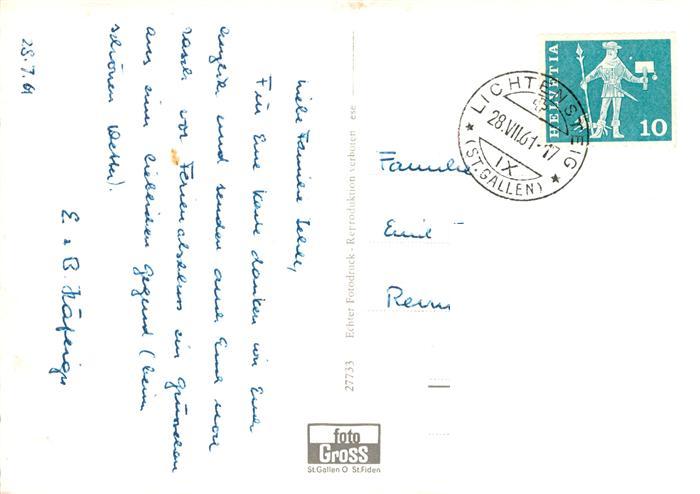 28.7.61
Liebe Familie
Für Eure Karte danken wir Euch
herzlich und senden auch Euch noch
rasch vor Ferienabschluss ein Grüsschen
aus einer lieblichen Gegend (beim
schönen Wetter).
E. + B.
Echter Fotodruck - Reproduktion verboten
27733
foto
Gross
St.Gallen O St.Fiden
Familie
Emil
HELVETIA
10
LICHTENSTEIG
28.VII.61-17
IX
(ST.GALLEN)